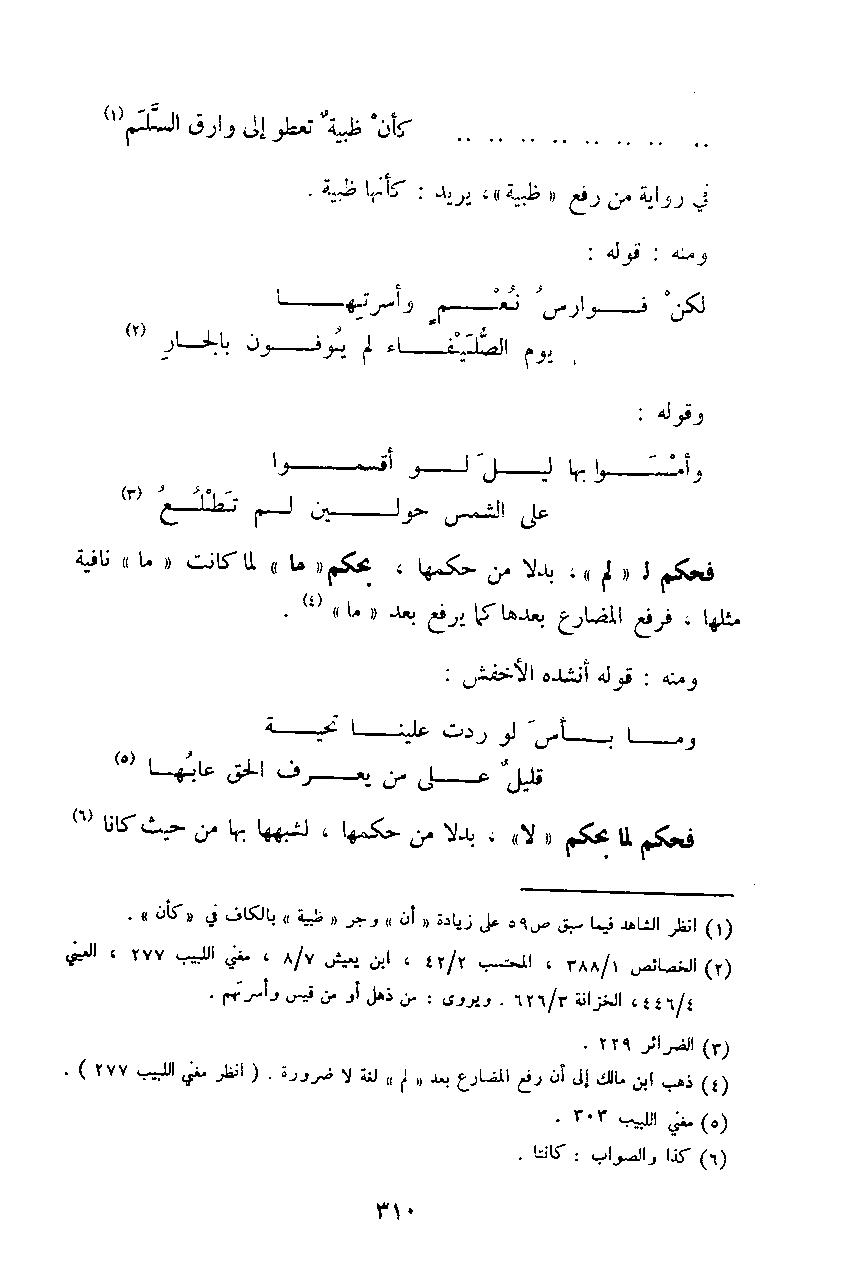 .. .. .. .. .. .. .. .. .. كأنْ ظبيةٌ تعطو إلى وارق السَّلَم (١)
في رواية من رفع « ظبية » ، يريد : كأنها ظبية .
ومنه : قوله :
لكنْ فـــوارسُ نُعْـــمٍ وأسرتِهـــا
يوم الصُّلَيْفـــاء لم يُوفـــون بالجـــارِ (٢)
وقوله :
وأمْسَـــوا بها ليـــلَ لـــو أقسمـــوا
على الشمس حولـــين لـــم تَطْلُـــعُ (٣)
فحكم لـ « لم » ، بدلا من حكمها ، بحكم « ما » لما كانت « ما » نافية
مثلها ، فرفع المضارع بعدها كما يرفع بعد « ما » (٤) .
ومنه : قوله أنشده الأخفش :
ومـــا بـــأسَ لو ردت علينـــا تحيـــة
قليلٌ عـــلى من يعـــرف الحق عابُهـــا (٥)
فحكم لما بحكم « لا » ، بدلا من حكمها ، لشبهها بها من حيث كانا (٦)
(١) انظر الشاهد فيما سبق ص ٥٩ على زيادة « أن » وجر « ظبية » بالكاف في « كأن » .
(٢) الخصائص ٣٨٨/١ ، المحتسب ٤٢/٢ ، ابن يعيش ٨/٧ ، مغني اللبيب ٢٧٧ ، العيني
٤٤٦/٤ ، الخزانة ٦٢٦/٣ . ويروى : من ذهل أو من قيس وأسرتهم .
(٣) الضرائر ٢٢٩ .
(٤) ذهب ابن مالك إلى أن رفع المضارع بعد « لم » لغة لا ضرورة . ( انظر مغني اللبيب ٢٧٧ ) .
(٥) مغني اللبيب ٣٠٣ .
(٦) كذا والصواب : كانتا .
٣١٠